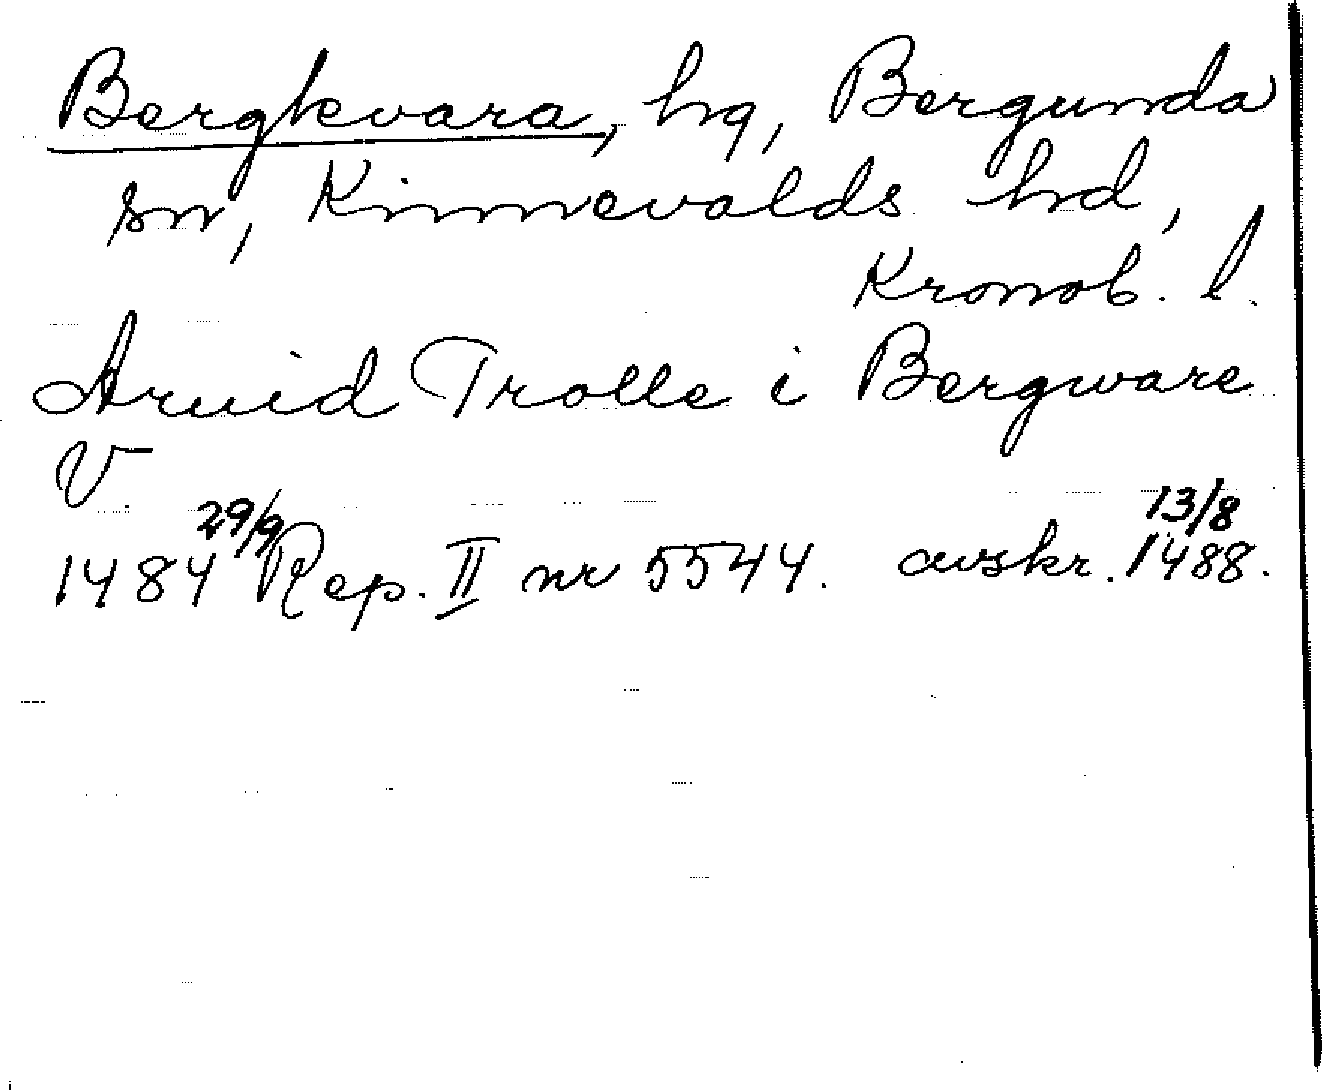 Bergkvara, hg, Bergunda
sn, Kinnevalds hd,
Kronob. l.
Aruid Trolle i Bergware
V.
1484 29/9 Rep. II nr 5544. avskr. 1488. 13/8